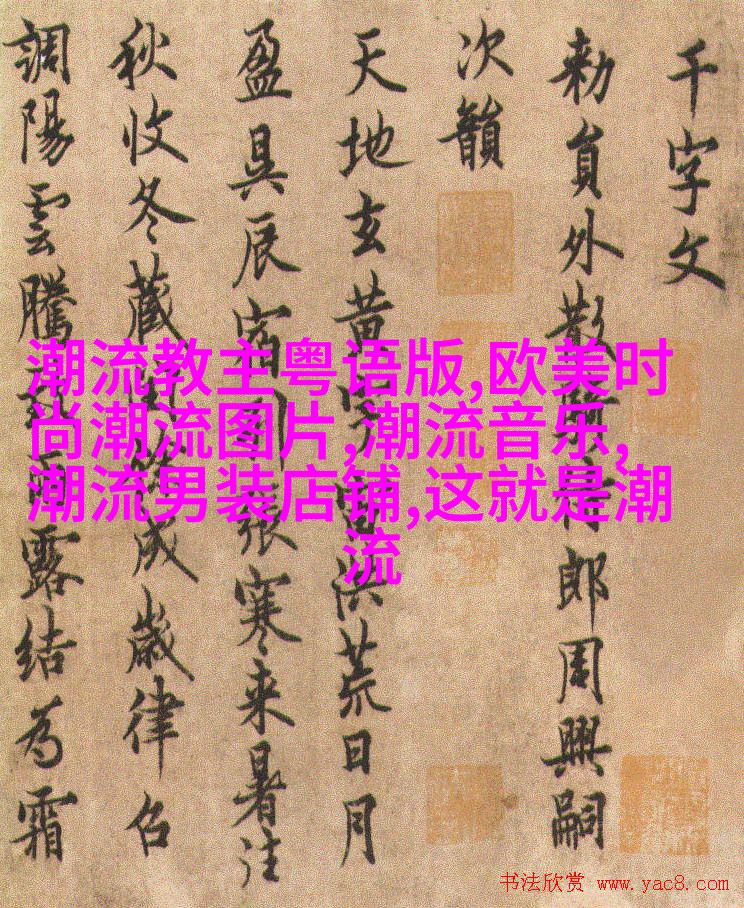 千字文
勅員外散騎侍郎周興嗣
次韻
天地玄黄宇宙洪荒日月
盈昃辰宿列張寒来暑往
秋收冬蔵閏餘成歳律召
調陽雲騰致雨露結為霜
潮流教主粤语版,欧美时
尚潮流图片,潮流音乐,
潮流男装店铺,这就是潮
流
书法欣赏 www.yac8.com